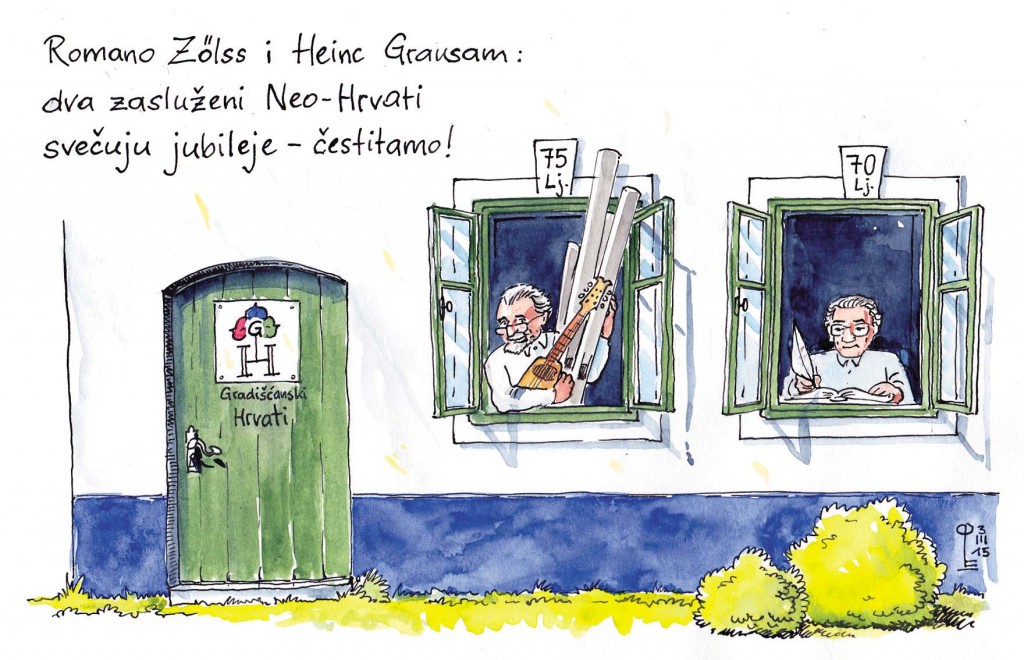 Romano Zölss i Heinc Grausam:
dva zasluženi Neo-Hrvati
svečuju jubileje – čestitamo!
75
Lj.
70
Lj.
G
H
Gradišćanski
Hrvati
3
III
15